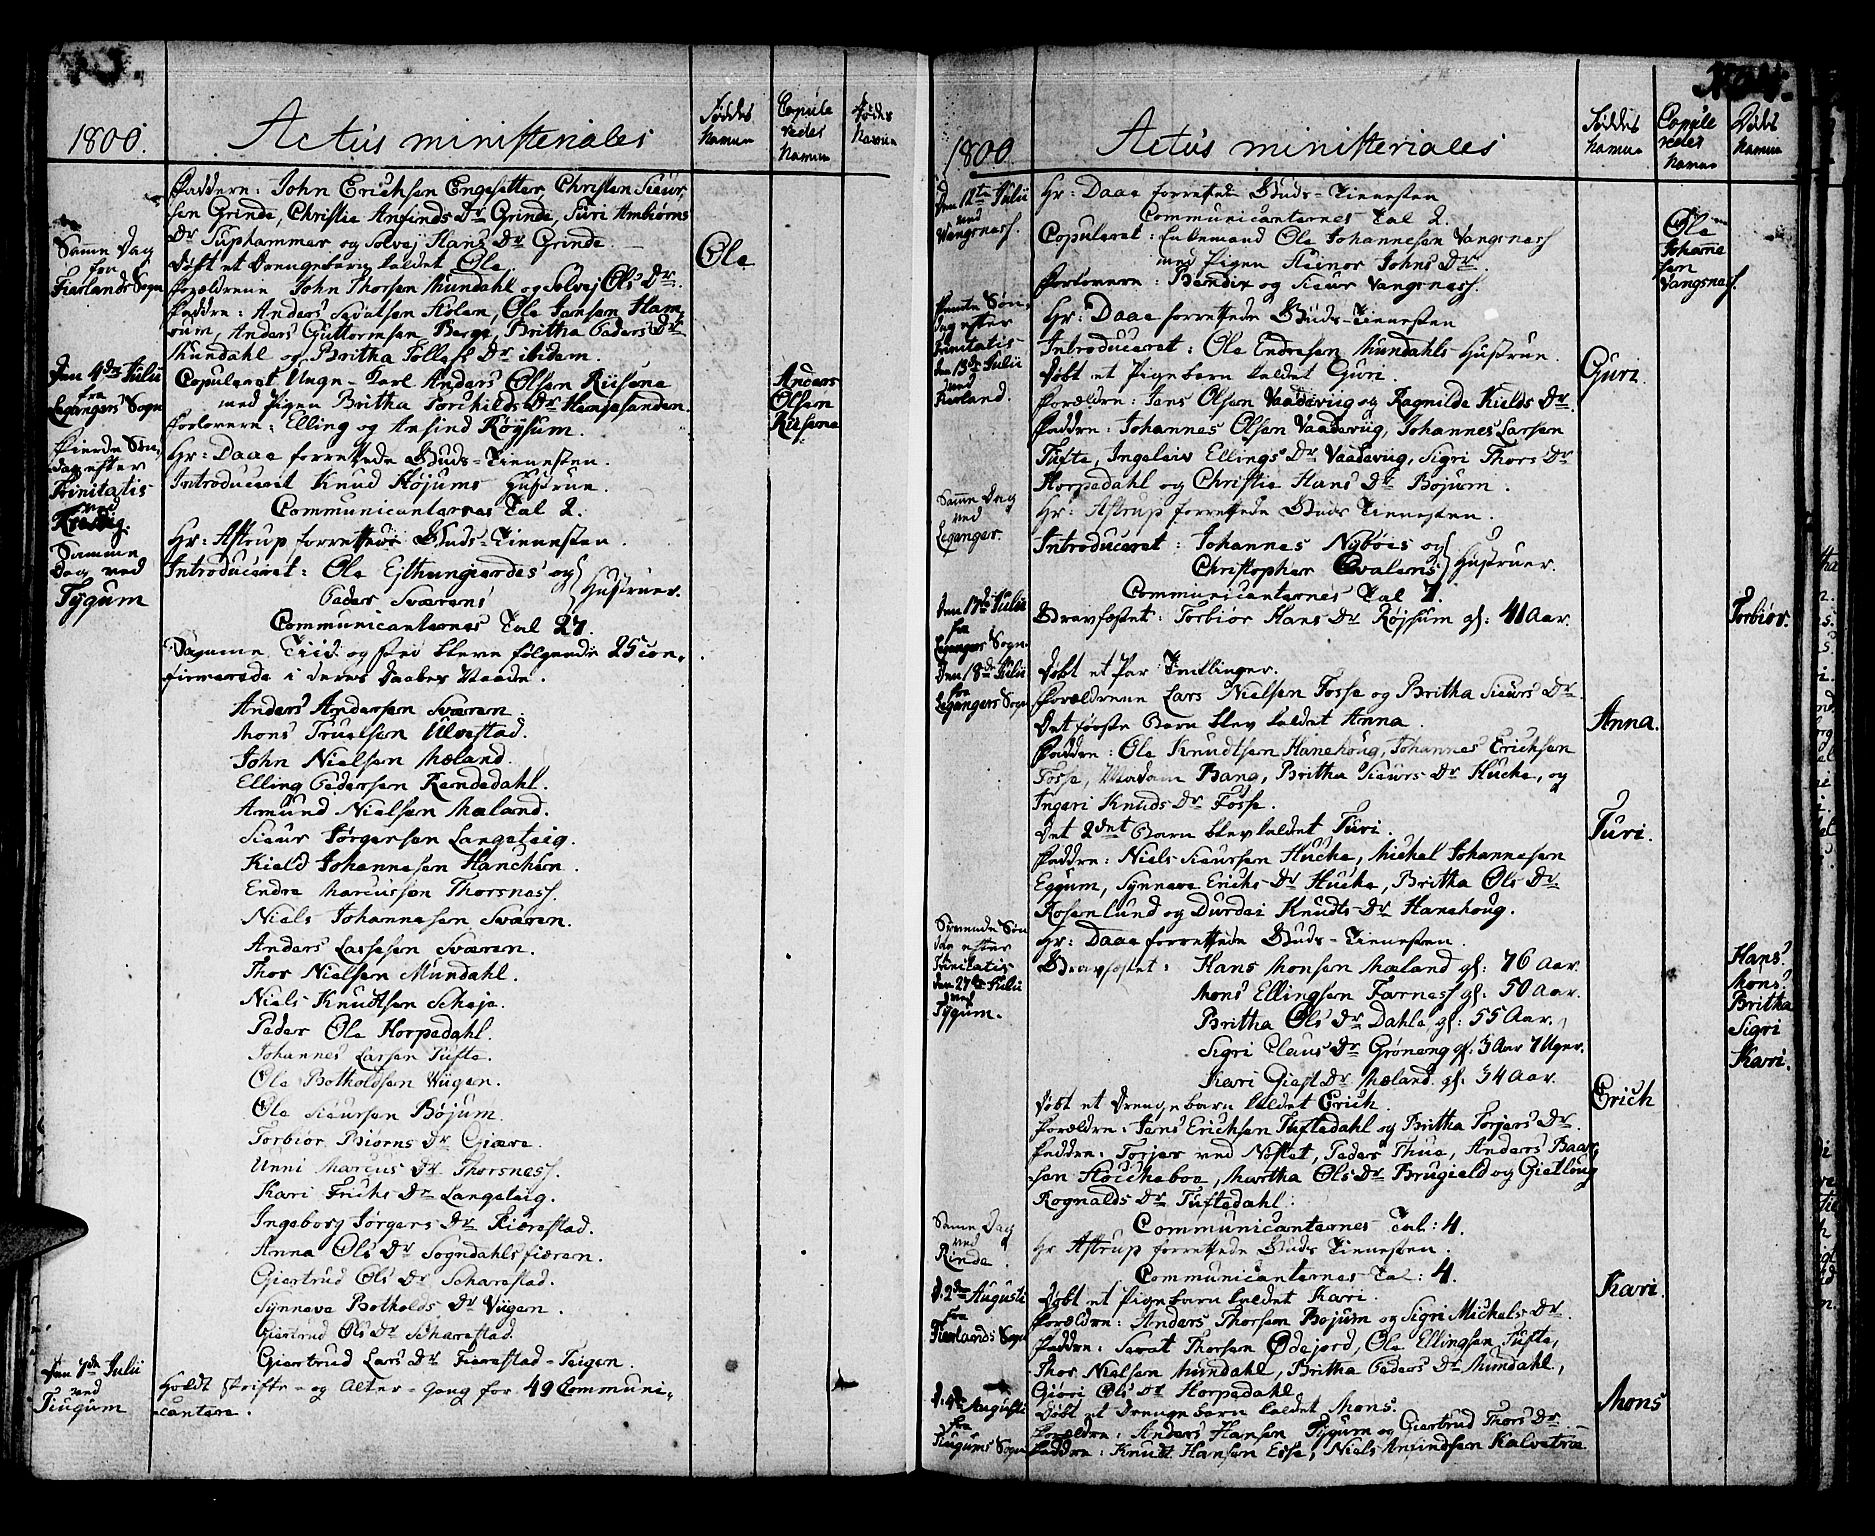 1800.
Actus ministeriales
Føddes Navne
Copule
redes
Navne
Dødes
Navne
Faddere: John Erichsen Engesetter, Christen Siur,
sen Grinde, Christie Anfinds Dr Grinde, Turi Ambiørns
Dr Tuphammer og Solvej Hans Dr Grinde.
Samme Dag
fra
Fierlands Sogn
Døbt et Drengebarn kaldet Ole
Ole
Forældrene John Thorsen Mundahl og Solvej Ols Dr.
Faddre: Anders Sivatsen Stolen, Ole Jansen Ham,
rum, Anders Guttormsen Berge, Britha Peders Dr
Mundahl og Britha Tollefs Dr ibidem.
Den 4de Julii
fra
Leganger Sogn
Copuleret Unge-Karl Anders Olsen Riisene
med Pigen Britha Torchilds Dr Hamresanden.
Forlovere: Elling og Anfind Røysum.
Anders
Olsen
Riisene
Fierde Søn,
dag efter
Trinitatis
ved
Hr: Daae forrettede Guds-Tienesten.
Introduceret Knud Højums Hustrue.
Communicanternes Tal 2.
Samme
Dag ved
Tygum
Hr: Astrup forrettede Guds-Tienesten.
Introduceret: Ole Esthungierdes og
Peder Sværens Hustruer.
Communicanternes Tal 27.
Sagume Tiid og sted bleve følgende 25 con,
firmerede i deres Daabes Naade.
Anders Andersen Sværen.
Mons Truelsen Ulvestad.
John Nielsen Mæland.
Elling Pedersen Romdedahl.
Amund Nielsen Mæland.
Siur Jørgensen Langeteig.
Kield Johannesen Hanchen.
Endre Marcussen Thorsness.
Niels Johannesen Sværen.
Anders Lassesen Sværen.
Thor Nielsen Mundahl.
Niels Knudtsen Scheje.
Peder Ole Horpedahl.
Johannes Larsen Tufte.
Ole Botholdsen Viigen.
Ole Siursen Bøjum.
Torbiør Biørns Dr Giære.
Unni Marcus Dr Thorsness.
Kari Frichs Dr Langeteig.
Ingeborg Jørgens Dr Fiærestad.
Anna Ols Dr Sogndahlsfiæren.
Giertrud Ols Dr Scharestad.
Synneve Botholds Dr Viigen.
Giertrud Ols Dr Scharestad.
Giertrud Lars Dr Fiærestad-Teigen.
Den 7de Julii
ved
Tiugum
Holdt skrifte- og Alter-Gang for 49 Communi,
cantere.
1800
Actus ministeriales
Føddes
Navne
Copule
redes
Navne
Dødes
Navne
Den 12te Julii
ved
Vangsness.
Hr: Daae forrettede Guds-Tienesten
Communicanternes Tal 2.
Copuleret: Enkemand Ole Johannesen Vangsness
med Pigen Steinor Johns Dr.
Forlovere: Bendix og Siur Vangsness.
Ole
Johanne
sen
Vangsness.
Femte Søn,
dag efter
Trinitatis
den 13de Julii
ved
Fierland.
Hr: Daae forrettede Guds-Tienesten
Introduceret: Ole Endresen Mundahls Hustrue.
Døbt et Pigebarn kaldet Guri.
Guri.
Forældre: Jens Olsen Vaadeviig og Ragnilde Kields Dr.
Faddre: Johannes Olsen Vaadeviig, Johannes Larsen
Tufte, Ingeleiv Ellings Dr Vaadevig, Sigri Thors Dr
Horpedahl og Christie Hans Dr Bøjum.
Samme Dag
ved
Leganger.
Hr: Astrup forrettede Guds-Tienesten.
Introduceret: Johannes Nybøes og
Christopher Qvalens Hustruer.
Communicanternes Tal 7.
Den 17de Julii
fra
Legangers Sogn
Gravfæstet: Torbiør Hans Dr Røjsum gl: 41 Aar.
Torbiør.
Den 18de Julii
fra
Legangers Sogn
Døbt et Par Tvillinger.
Forældrene Lars Nielsen Fosse og Britha Siurs Dr.
Det første Barn blev kaldet Anna.
Anna.
Faddre: Ole Knudtsen Hanehoug, Johannes Erichsen
Fosse, Madam Bang, Britha Siurs Dr Hucke, og
Ingeri Knuds Dr Fosse.
Det 2det Barn blev kaldet Turi.
Turi.
Faddre: Niels Siursen Hucke, Michel Johannesen
Eggum, Synneve Erichs Dr Hucke, Britha Ols Dr
Rosenlund og Durdei Knudts Dr Hanehoug.
Syvende Søn
dag efter
Trinitatis
den 27de Julii
ved
Tygum.
Hr: Daae forrettede Guds-Tienesten.
Gravfæstet: Hans Monsen Mæland gl: 76 Aar.
Hans.
Mons Ellingsen Farness gl: 50 Aar.
Mons.
Britha Ols Dr Dahle gl: 55 Aar.
Britha
Sigri Claus Dr Grøneng gl: 3 Aar 7 Uger.
Sigri
Kari Giest Dr Mæland gl: 34 Aar.
Kari.
Døbt et Drengebarn kaldet Erich.
Erich
Forældre: Jens Erichsen Tuftedahl og Britha Torjers Dr.
Faddre: Torjer ved Nøstet, Peder Thue, Anders Baar,
sen Hoicheboe, Martha Ols Dr Brugield og Gietloug
Rognalds Dr Tuftedahl.
Communicanternes Tal: 4.
Samme Dag
ved
Rinde.
Hr Astrup forrettede Guds-Tienesten.
Communicanternes Tal: 4.
d. 2den Augusti
fra
Fierlands Sogn
Døbt et Pigebarn kaldet Kari.
Kari.
Forældre: Anders Thorsen Bøjum og Sigri Michels Dr.
Faddre: Sevat Thorsen Ødejord, Ole Ellingsen Tufte,
Thor Nielsen Mundahl, Britha Peders Dr Mundahl,
Giøri Ols Dr Horpedahl
d. 4de Augusti
fra
Tiugums Sogn
Døbt et Drengebarn kaldet Mons.
Mons
Forældre: Anders Hansen Tygum og Giertrud Thors Dr
Faddre: Knudt Hansen Esse, Niels Anfindsen Kalvetræ